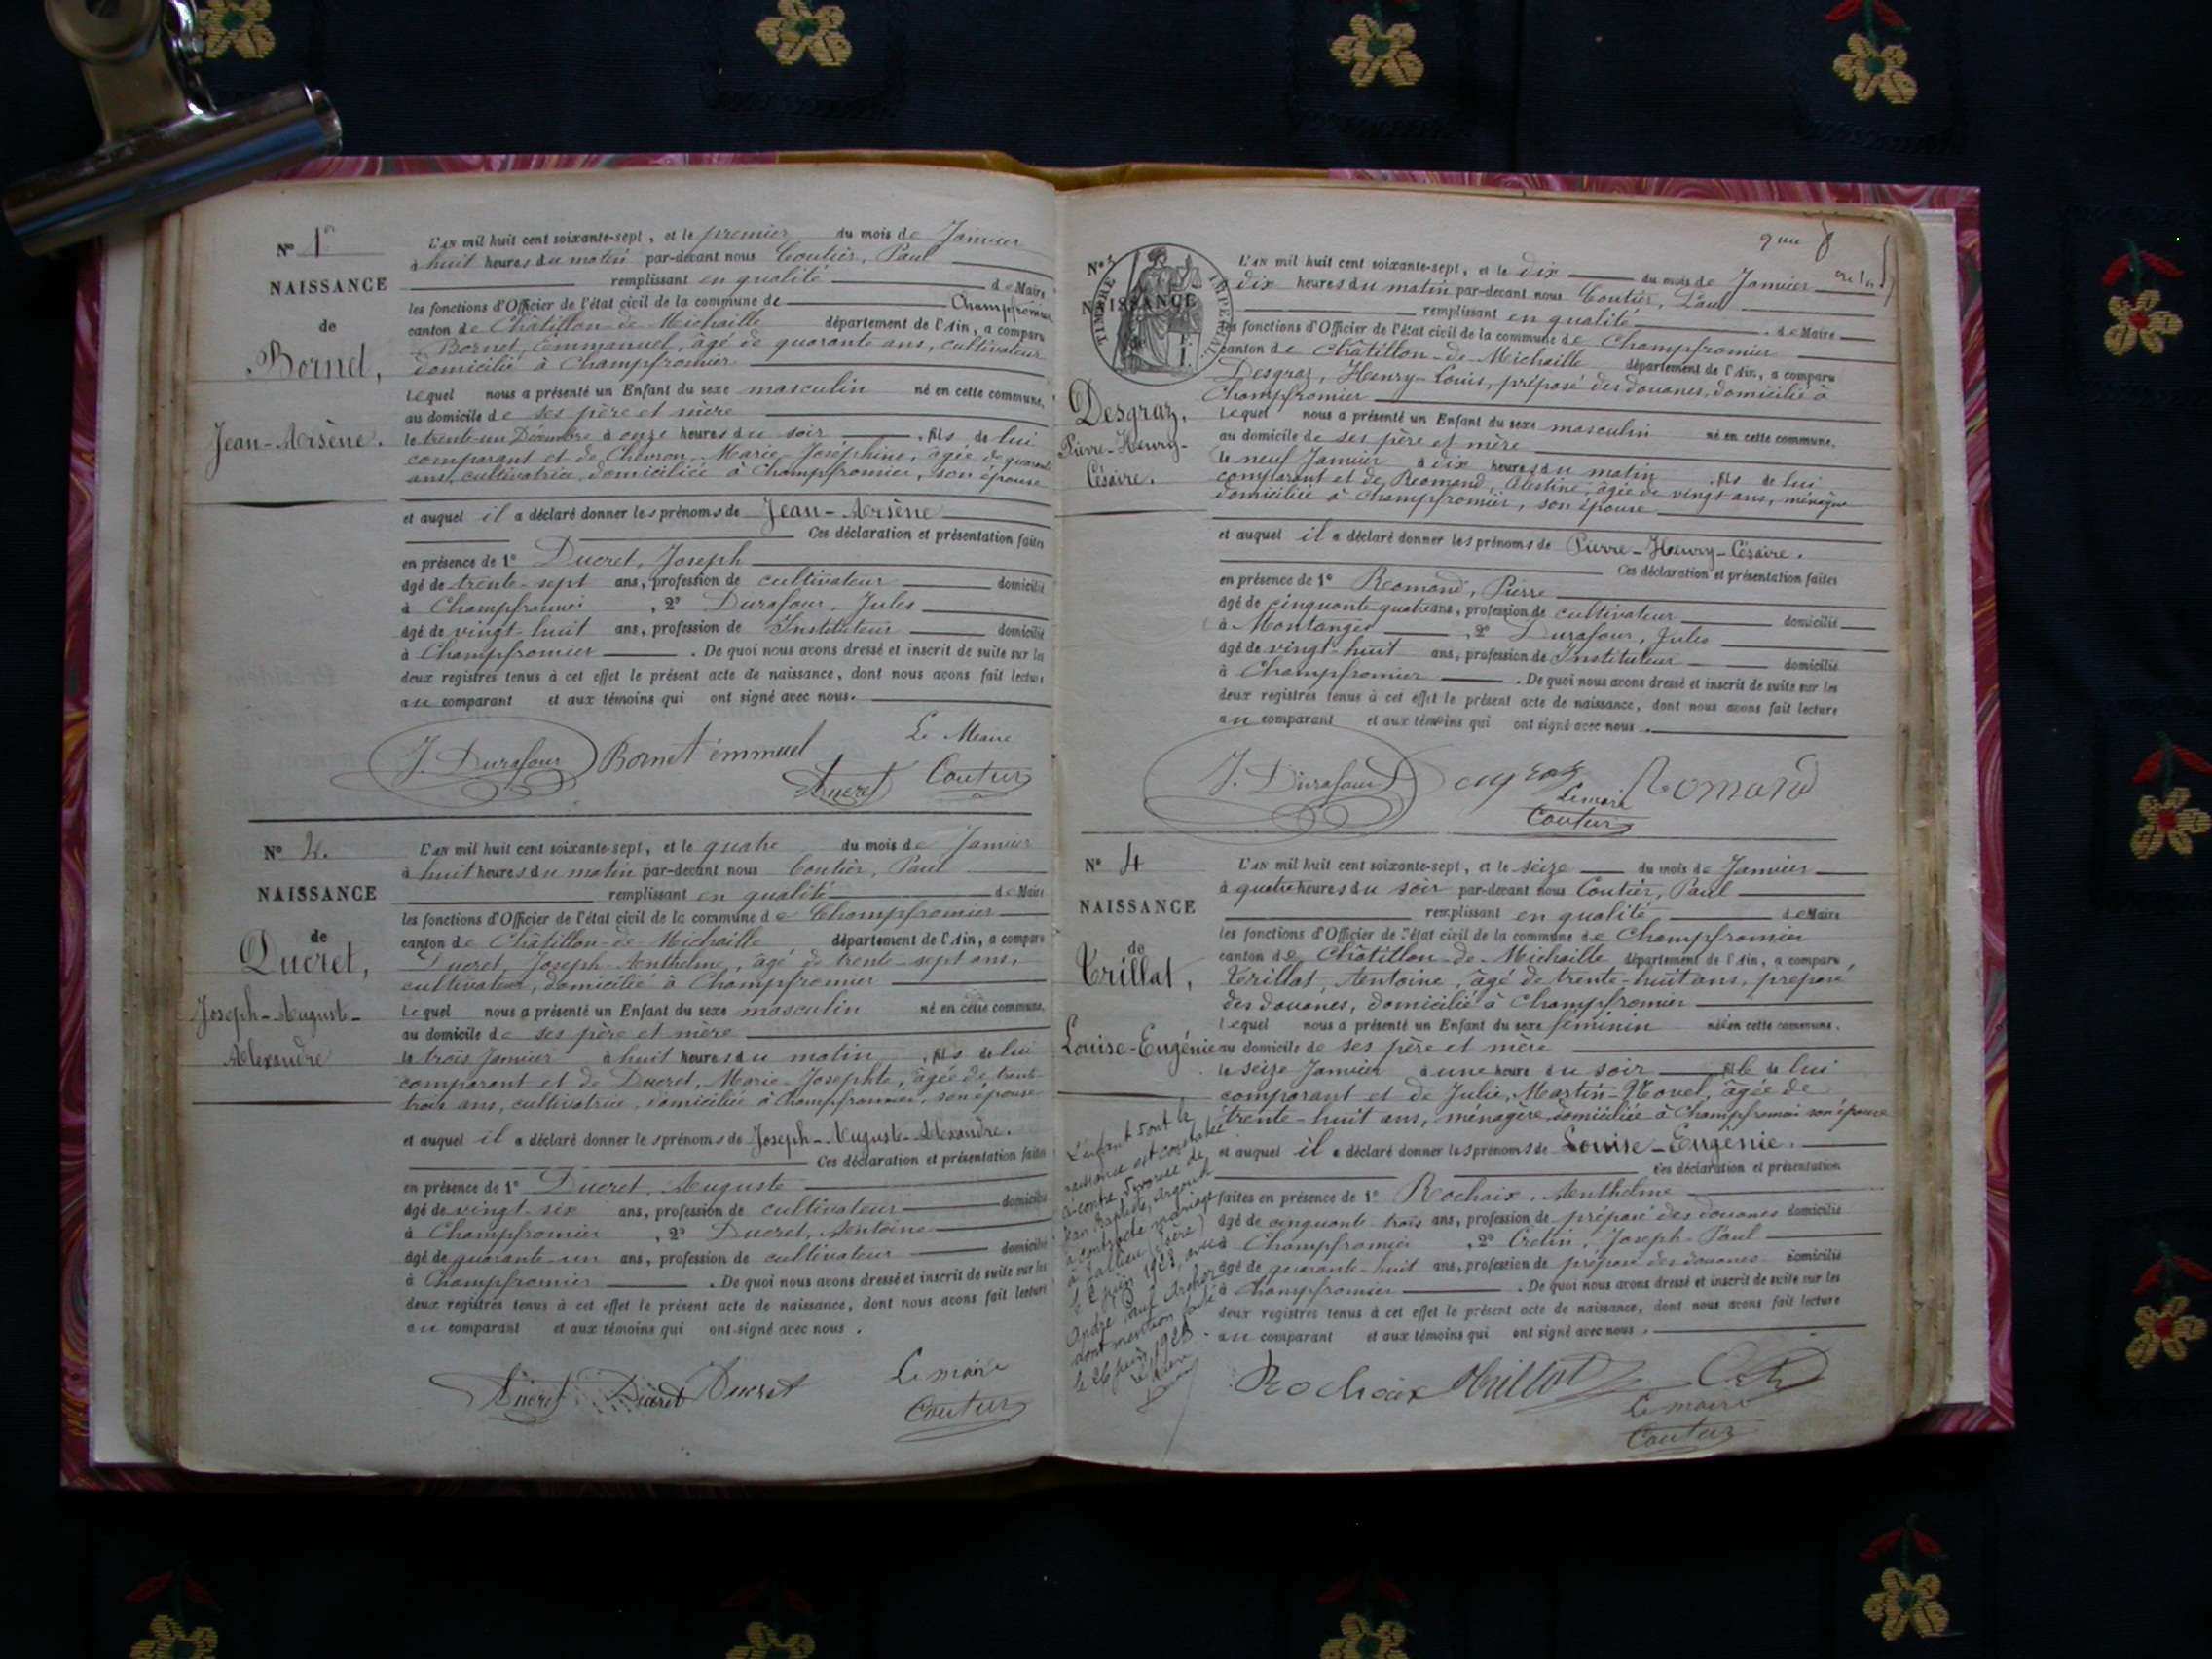 N° 1er
NAISSANCE
de
Bornet,
Jean-Arsène.
L'AN mil huit cent soixante-sept, et le premier du mois de Janvier
à huit heures du matin par-devant nous Coutier, Paul
remplissant en qualité de Maire
les fonctions d'Officier de l'état civil de la commune de Champfromier
canton de Châtillon-de-Michaille département de l'Ain, a comparu
Bornet, Emmanuel, âgé de quarante ans, cultivateur
domicilié à Champfromier
Lequel nous a présenté un Enfant du sexe masculin né en cette commune,
au domicile de ses père et mère
le trente-un Décembre à onze heures du soir, fils de lui
comparant et de Chevron, Marie-Joséphine, âgée de quarante
ans, cultivatrice, domiciliée à Champfromier, son épouse
et auquel il a déclaré donner les prénoms de Jean-Arsène
Ces déclaration et présentation faites
en présence de 1° Ducret, Joseph
âgé de trente-sept ans, profession de cultivateur domicilié
à Champfromier, 2° Durafour, Jules
âgé de vingt-huit ans, profession de Instituteur domicilié
à Champfromier. De quoi nous avons dressé et inscrit de suite sur les
deux registres tenus à cet effet le présent acte de naissance, dont nous avons fait lecture
au comparant et aux témoins qui ont signé avec nous.
J. Durafour Bornet émmuel Le Maire
Ducret Coutier
N° 2.
NAISSANCE
de
Ducret,
Joseph-Auguste-
Alexandre
L'AN mil huit cent soixante-sept, et le quatre du mois de Janvier
à huit heures du matin par-devant nous Coutier, Paul
remplissant en qualité de Maire
les fonctions d'Officier de l'état civil de la commune de Champfromier
canton de Châtillon-de-Michaille département de l'Ain, a comparu
Ducret, Joseph-Anthelme, âgé de trente-sept ans,
cultivateur, domicilié à Champfromier
Lequel nous a présenté un Enfant du sexe masculin né en cette commune,
au domicile de ses père et mère
le trois Janvier à huit heures du matin, fils de lui
comparant et de Ducret, Marie-Josephte, âgée de trente
trois ans, cultivatrice, domiciliée à Champfromier, son épouse
et auquel il a déclaré donner les prénoms de Joseph-Auguste-Alexandre.
Ces déclaration et présentation faites
en présence de 1° Ducret, Auguste
âgé de vingt-six ans, profession de cultivateur domicilié
à Champfromier, 2° Ducret, Antoine
âgé de quarante-un ans, profession de cultivateur domicilié
à Champfromier. De quoi nous avons dressé et inscrit de suite sur les
deux registres tenus à cet effet le présent acte de naissance, dont nous avons fait lecture
au comparant et aux témoins qui ont signé avec nous.
Ducret Ducret Ducret Le maire
Coutier
N° 3
TIMBRE IMPERIAL
NAISSANCE
Desgraz,
Pierre-Henry-
Césaire.
L'AN mil huit cent soixante-sept, et le dix du mois de Janvier
dix heures du matin par-devant nous Coutier, Paul
remplissant en qualité de Maire
les fonctions d'Officier de l'état civil de la commune de Champfromier
canton de Châtillon-de-Michaille département de l'Ain, a comparu
Desgraz, Henry-Louis, préposé des douanes, domicilié à
Champfromier
Lequel nous a présenté un Enfant du sexe masculin né en cette commune,
au domicile de ses père et mère
le neuf Janvier à dix heures du matin, fils de lui
comparant et de Reomand, Célestine, âgée de vingt ans, ménagère
domiciliée à Champfromier, son épouse
et auquel il a déclaré donner les prénoms de Pierre-Henry-Césaire.
Ces déclaration et présentation faites
en présence de 1° Reomand, Pierre
âgé de cinquante-quatre ans, profession de cultivateur domicilié
à Montanges, 2° Durafour, Jules
âgé de vingt-huit ans, profession de Instituteur domicilié
à Champfromier. De quoi nous avons dressé et inscrit de suite sur les
deux registres tenus à cet effet le présent acte de naissance, dont nous avons fait lecture
au comparant et aux témoins qui ont signé avec nous.
J. Durafour Romand
Le maire
Coutier
N° 4
NAISSANCE
de
Trillat,
Louise-Eugénie
L'AN mil huit cent soixante-sept, et le seize du mois de Janvier
à quatre heures du soir par-devant nous Coutier, Paul
remplissant en qualité de Maire
les fonctions d'Officier de l'état civil de la commune de Champfromier
canton de Châtillon-de-Michaille département de l'Ain, a comparu,
Trillat, Antoine, âgé de trente-huit ans, préposé
des douanes, domicilié à Champfromier
Lequel nous a présenté un Enfant du sexe féminin née en cette commune,
au domicile de ses père et mère
le seize Janvier à une heure du soir fille de lui
comparant et de Julie, Martin-Novel, âgée de
trente-huit ans, ménagère domiciliée à Champfromier son épouse
et auquel il a déclaré donner les prénoms de Louise-Eugénie.
Ces déclaration et présentation
faites en présence de 1° Rochaix, Anthelme
âgé de cinquante-trois ans, profession de préposé des douanes domicilié
à Champfromier, 2° Cretin, Joseph-Paul
âgé de quarante-huit ans, profession de préposé des douanes domicilié
à Champfromier. De quoi nous avons dressé et inscrit de suite sur les
deux registres tenus à cet effet le présent acte de naissance, dont nous avons fait lecture
au comparant et aux témoins qui ont signé avec nous.
Rochaix Trillat
Le maire
Coutier
L'enfant dont la
naissance est constatée
ci-contre, divorcée de
Jean Baptiste,
a contracté mariage
à (Isère)
le 2 juin 1923, avec
André
dont mention faite
le 26 juin 1923.